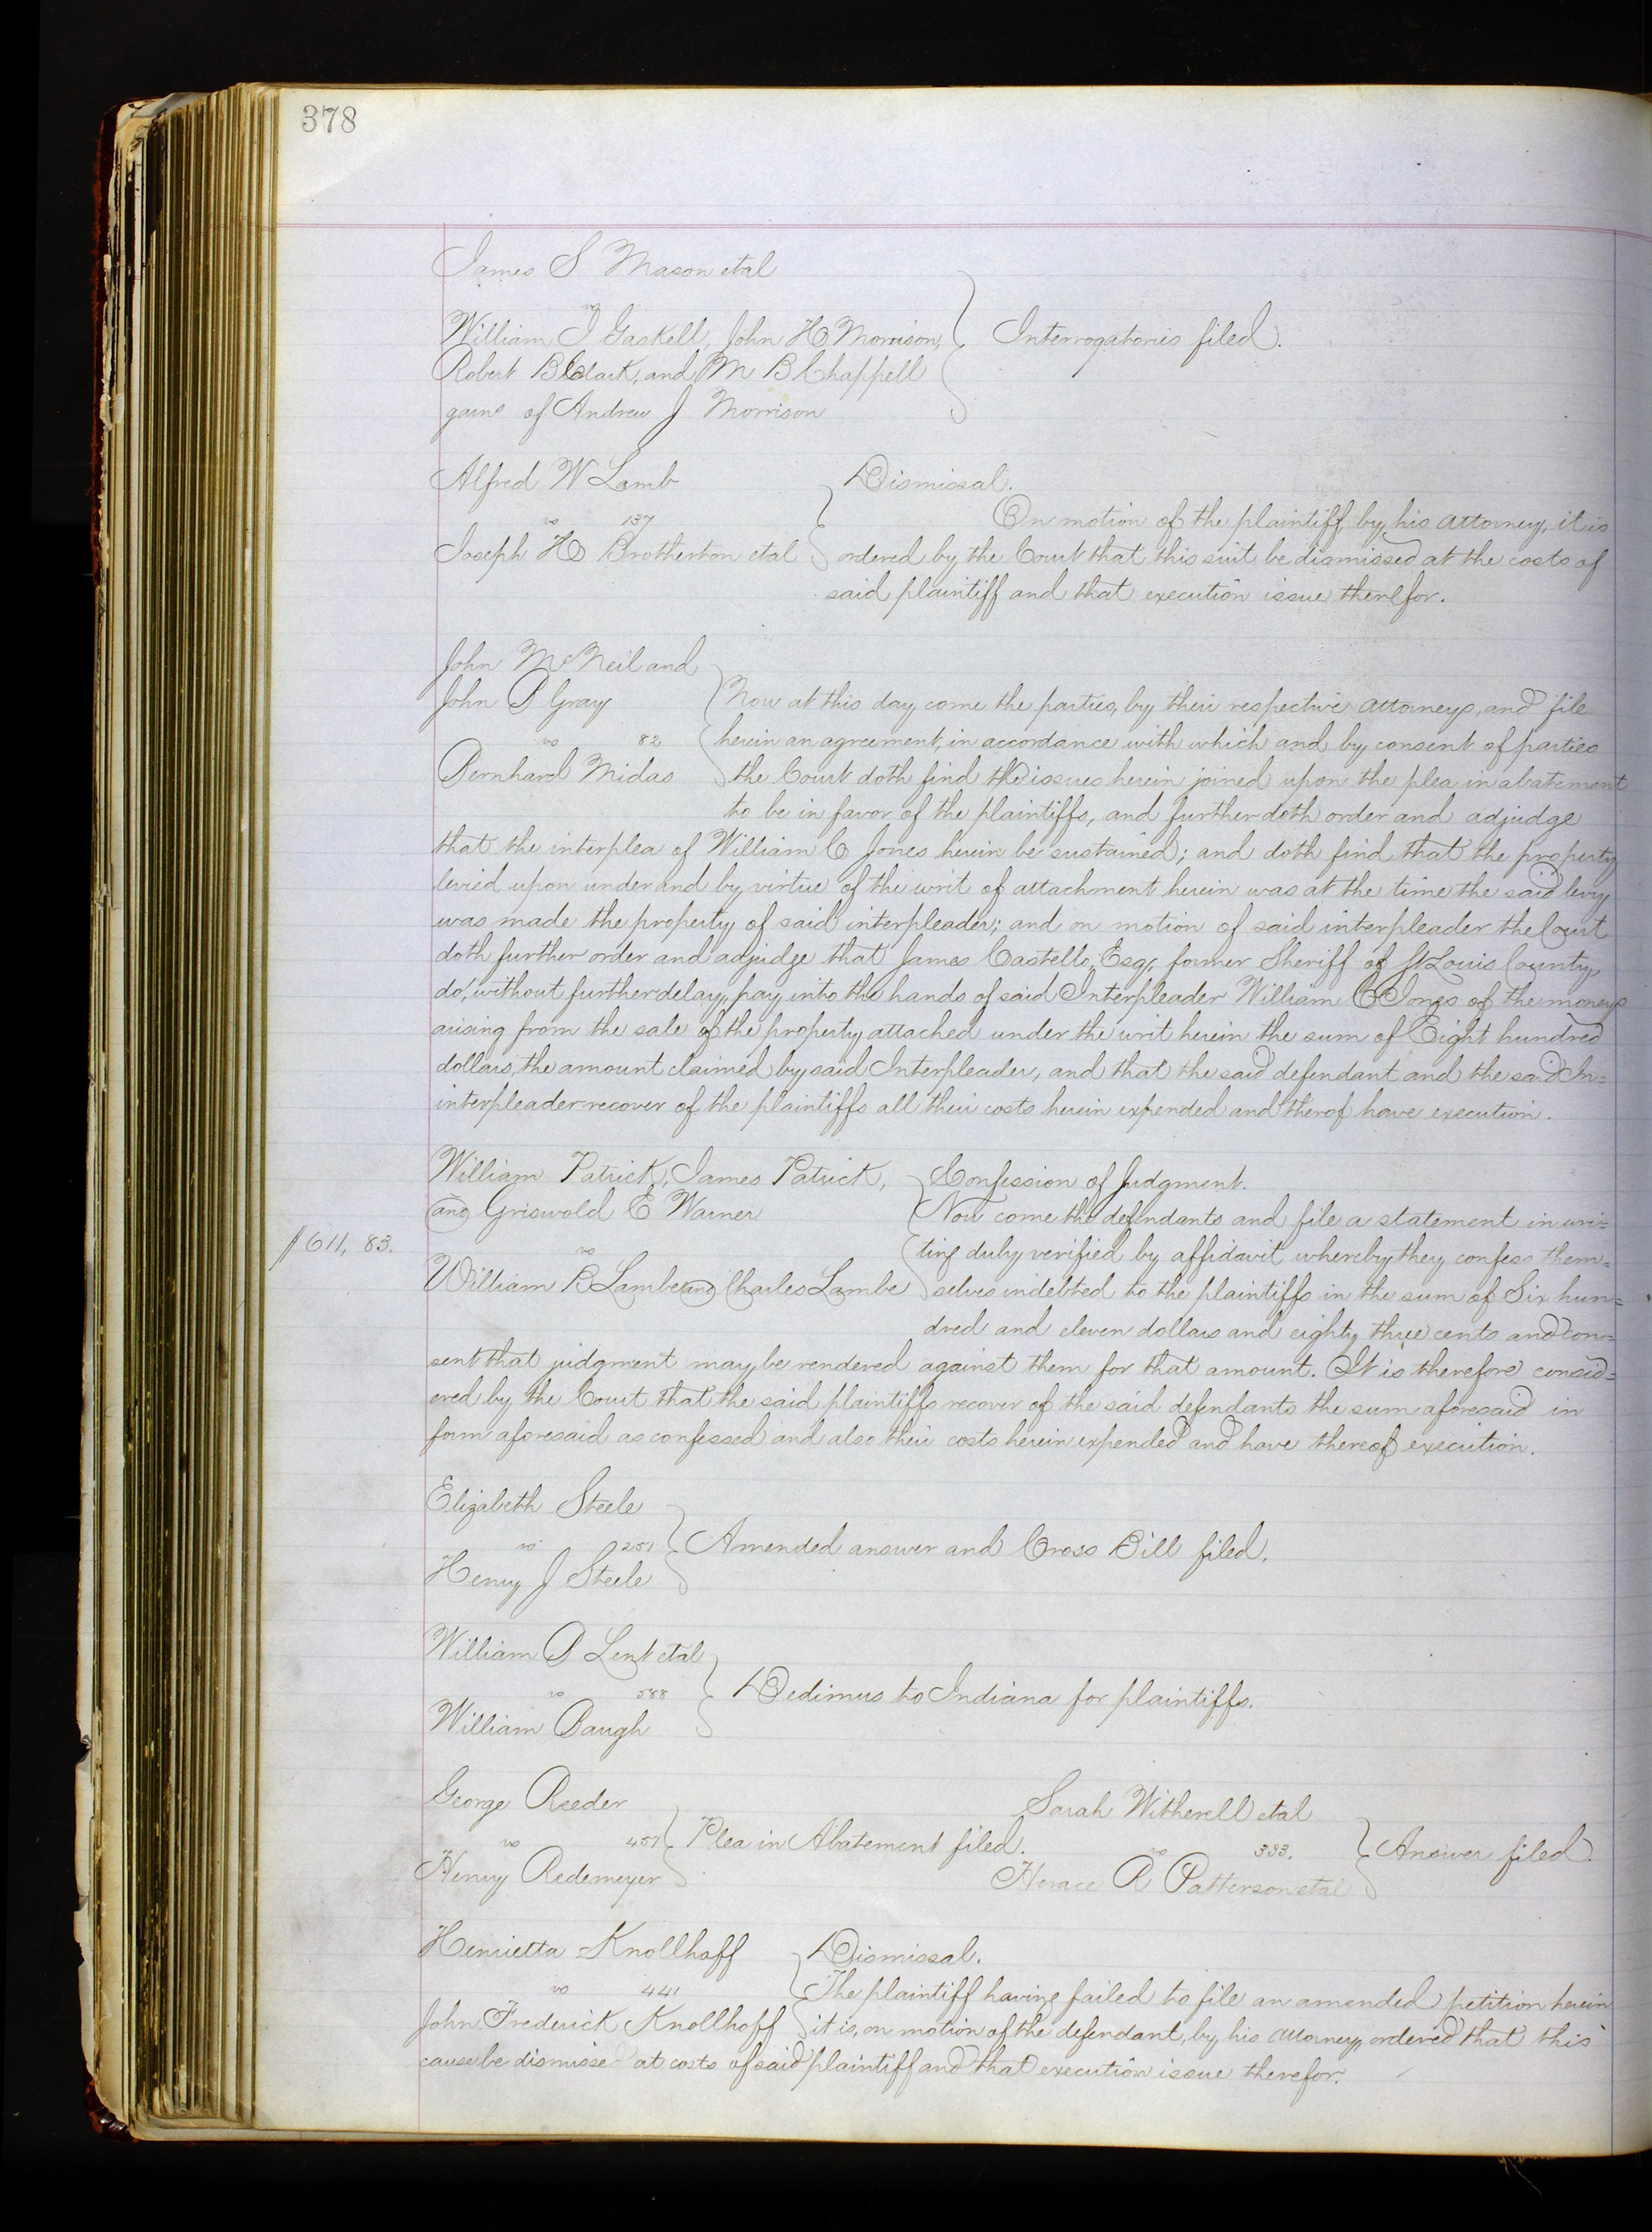 378
James S Mason etal
vs
William I Gaskell, John H Morrison,
Robert B Clark, and M B Chappell
garns of Andrew J Morrison
Interrogatories filed.
Alfred W Lamb
vs 137
Joseph H Brotherton etal
Dismissal.
On motion of the plaintiff, by his attorney, it is
ordered by the Court that this suit be dismissed at the costs of
said plaintiff and that execution issue therefor.
John McNeil and
John P Gray
vs 82
Bernhard Midas
Now at this day come the parties, by their respective attorneys, and file
herein an agreement, in accordance with which and by consent of parties
the Court doth find the issues herein joined upon the plea in abatement
to be in favor of the plaintiffs, and further doth order and adjudge
that the interplea of William C Jones herein be sustained; and doth find that the property
levied upon under and by virtue of the writ of attachment herein was at the time the said levy
was made the property of said interpleader; and on motion of said interpleader the Court
doth further order and adjudge that James Castello, Esq, former Sheriff of St Louis County,
do, without further delay, pay into the hands of said Interpleader William C Jones of the moneys
arising from the sale of the property attached under the writ herein the sum of Eight hundred
dollars, the amount claimed by said Interpleader, and that the said defendant and the said In=
interpleader recover of the plaintiffs all their costs herein expended and therof have execution.
William Patrick, James Patrick,
and Griswold E Warner
$611, 83.
vs
William B Lambe and Charles Lambe
Confession of Judgment.
Now come the defendants and file a statement in wri=
ting duly verified by affidavit whereby they confess them=
selves indebted to the plaintiffs in the sum of Six hun=
dred and eleven dollars and eighty three cents and con=
sent that judgment may be rendered against them for that amount. It is therefore consid=
ered by the Court that the said plaintiffs recover of the said defendants the sum aforesaid in
form aforesaid as confessed and also their costs herein expended and have thereof execution.
Elizabeth Steele
vs 251
Henry J Steele
Amended answer and Cross Bill filed.
William P Lent etal
vs 588
William Baugh
Dedimus to Indiana for plaintiffs.
George Reeder
vs 457
Henry Redemeyer
Plea in Abatement filed.
Sarah Witherell etal
vs 333.
Horace R Patterson etal
Answer filed.
Henrietta Knollhoff
vs 441
John Frederick Knollhoff
Dismissal.
The plaintiff having failed to file an amended petition herein
it is, on motion of the defendant, by his attorney, ordered that this
cause be dismisse at costs of said plaintiff and that execution issue therefor.